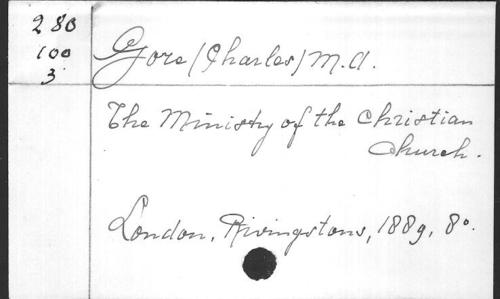 280
100
3
Gore (Charles) M.A.
The Ministry of the Christian
Church.
London, Rivingtons, 1889, 8o.